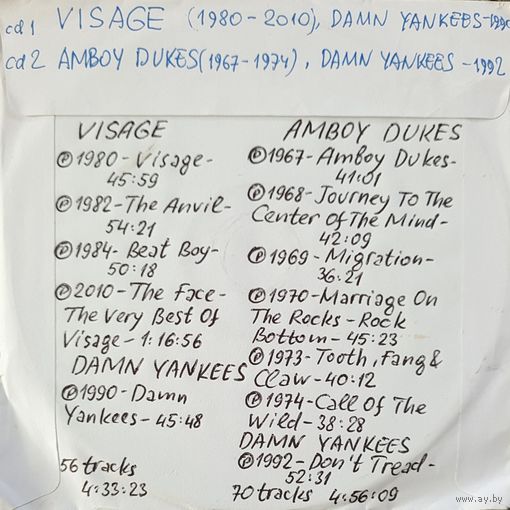 cd1 VISAGE (1980-2010), DAMN YANKEES-1990
cd2 AMBOY DUKES(1967-1974), DAMN YANKEES-1992
VISAGE
Ⓟ1980-Visage-
45:59
Ⓟ1982-The Anvil-
54:21
Ⓟ1984-Beat Boy-
50:18
Ⓟ2010-The Face-
The Very Best Of
Visage-1:16:56
DAMN YANKEES
Ⓟ1990-Damn
Yankees-45:48
56 tracks
4:33:23
AMBOY DUKES
Ⓟ1967-Amboy Dukes-
41:01
Ⓟ1968-Journey To The
Center Of The Mind-
42:09
Ⓟ1969-Migration-
36:21
Ⓟ1970-Marriage On
The Rocks-Rock
Bottom-45:23
Ⓟ1973-Tooth, Fang &
Claw-40:12
Ⓟ1974-Call Of The
Wild-38:28
DAMN YANKEES
Ⓟ1992-Don't Tread-
52:31
70 tracks 4:56:09
www.ay.by